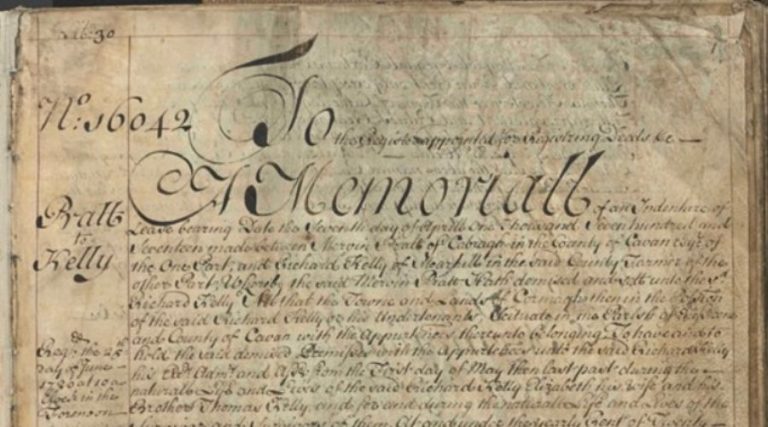 30
No: 16042
To
the Register appointed for Registring Deeds &c
A Memoriall of an Indenture of
Lease bearing Date the Seventh day of Aprill One thousand Seven hundred and
Seventeen made between Mervin Pratt of Cabragh in the County of Cavan Esqr. of
the One Part, and Richard Kelly of in the said County Farmer of the
other Part, Whereby the said Mervin Pratt Hath demised and Sett unto the sd.
Richard Kelly All that the Towne and Lands of then in the Possession
of the said Richard Kelly or his Undertenants, Scituate in the Parish of
and County of Cavan with the Appurtences thereunto belonging To have and to
hold the said demised Premisses with the Appurtences unto the said Richard Kelly
his Exrs. Admrs. and Ass. from the First day of May then last past during the
naturall Life and Lives of the said Richard Kelly Elizabeth his wife and his
Brother Thomas Kelly, and for and during the naturall Life and Lives of the
Survivor and Survivors of them At and under the yearly Rent of Twenty
Pratt
to
Kelly
Regr. the 25th
day of June
1720 at 10 a
Clock in the
Forenoon